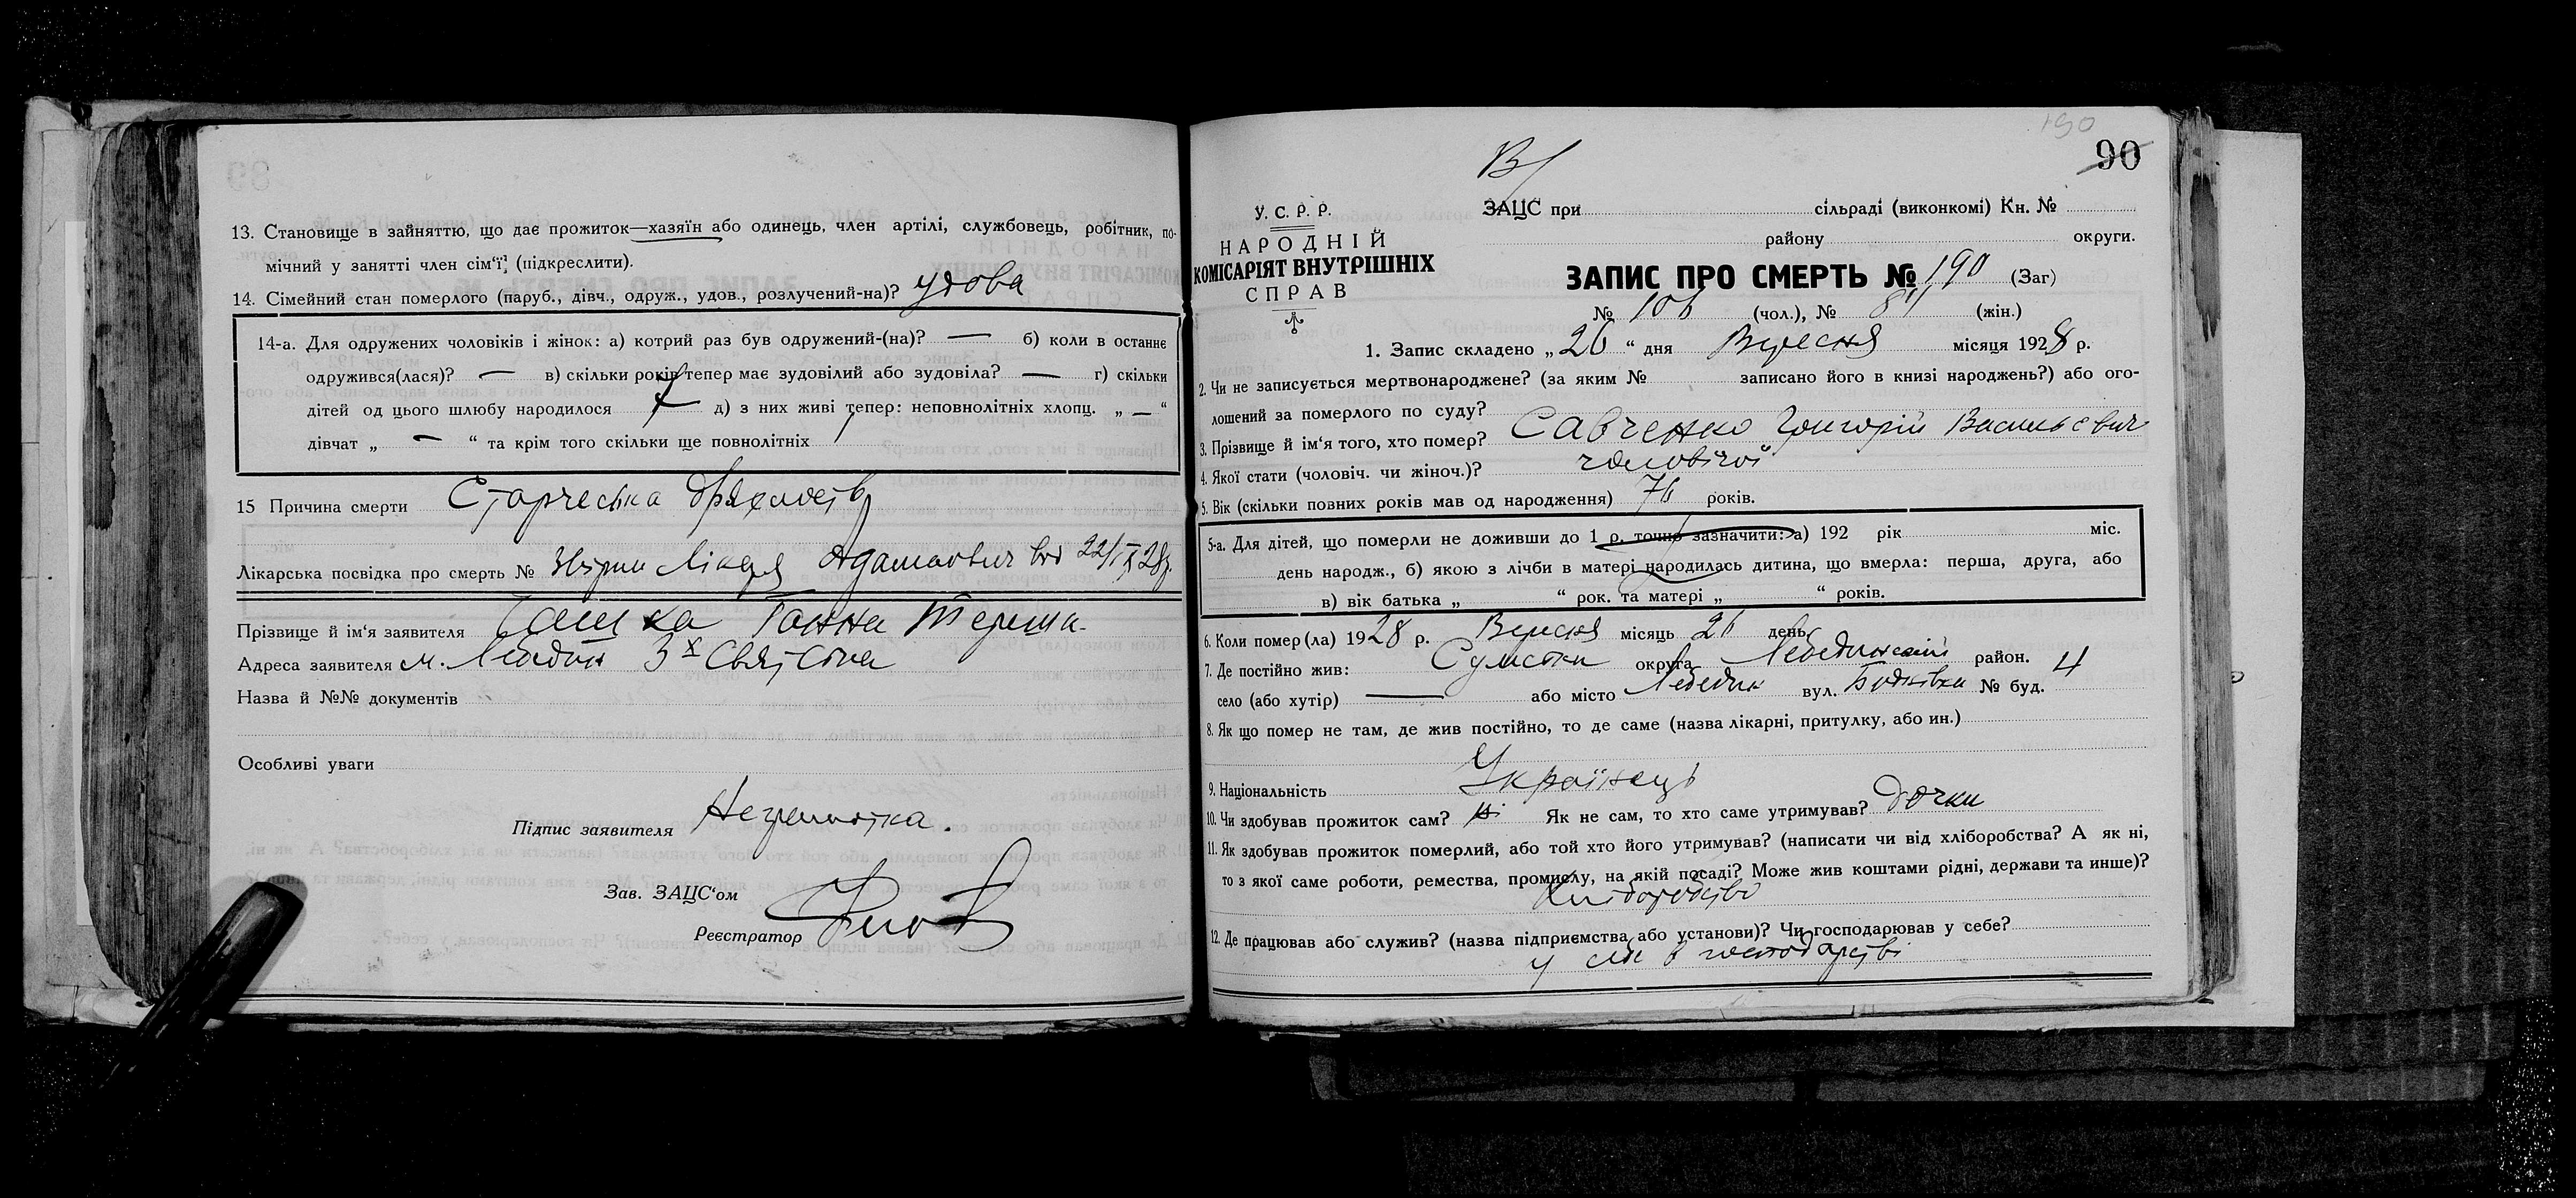 13. Становище в зайняттю, що дає прожиток—хазяїн або одинець, член артілі, службовець, робітник, по-
мічний у занятті член сім'ї, (підкреслити).
14. Сімейний стан померлого (паруб., дівч., одруж., удов., розлучений-на)? удова
14-а. Для одружених чоловіків і жінок: а) котрий раз був одружений-(на)? — б) коли в останнє
одружився(лася)? — в) скільки років тепер має зудовілий або зудовіла? — г) скільки
дітей од цього шлюбу народилося д) з них живі тепер: неповнолітніх хлопц. „ — “
дівчат „ — “ та крім того скільки ще повнолітніх
15 Причина смерти Старчеська
Лікарська посвідка про смерть № Лікаря Адамович від 22/IX 28р.
Прізвище й ім'я заявителя Ганна
Адреса заявителя м. Лебедин 3х
Назва й №№ документів
Особливі уваги
Підпис заявителя Неграмотна.
Зав. ЗАЦС'ом
Реєстратор
190
90
В/
У. С. Р. Р.
НАРОДНІЙ
КОМІСАРІЯТ ВНУТРІШНІХ
СПРАВ
ЗАЦС при сільраді (виконкомі) Кн. №
району округи.
ЗАПИС ПРО СМЕРТЬ № 190 (Заг)
№ 106 (чол.), № 84 (жін.)
1. Запис складено „ 26 “ дня Вересня місяця 1928 р.
2. Чи не записується мертвонароджене? (за яким № записано його в книзі народжень?) або ого-
лошений за померлого по суду?
3. Прізвище й ім'я того, хто помер? Савченко Григорій Васильєвич
4. Якої стати (чоловіч. чи жіноч.)? чоловічої
5. Вік (скільки повних років мав од народження) 76 років.
5-а. Для дітей, що померли не доживши до 1 р. точно зазначити: а) 192 рік міс.
день народж., б) якою з лічби в матері народилась дитина, що вмерла: перша, друга, або
в) вік батька „ “ рок. та матері „ “ років.
6. Коли помер(ла) 1928 р. Вересня місяць 26 день
7. Де постійно жив: Сумської округа Лебединський район.
село (або хутір) — або місто Лебедин вул. № буд. 4
8. Як що помер не там, де жив постійно, то де саме (назва лікарні, притулку, або ин.)
9. Національність Українець
10. Чи здобував прожиток сам? ні Як не сам, то хто саме утримував? дочки
11. Як здобував прожиток померлий, або той хто його утримував? (написати чи від хліборобства? А як ні,
то з якої саме роботи, ремества, промислу, на якій посаді? Може жив коштами рідні, держави та инше)?
Хліборобство
12. Де працював або служив? (назва підприємства або установи)? Чи господарював у себе?
у господарстві